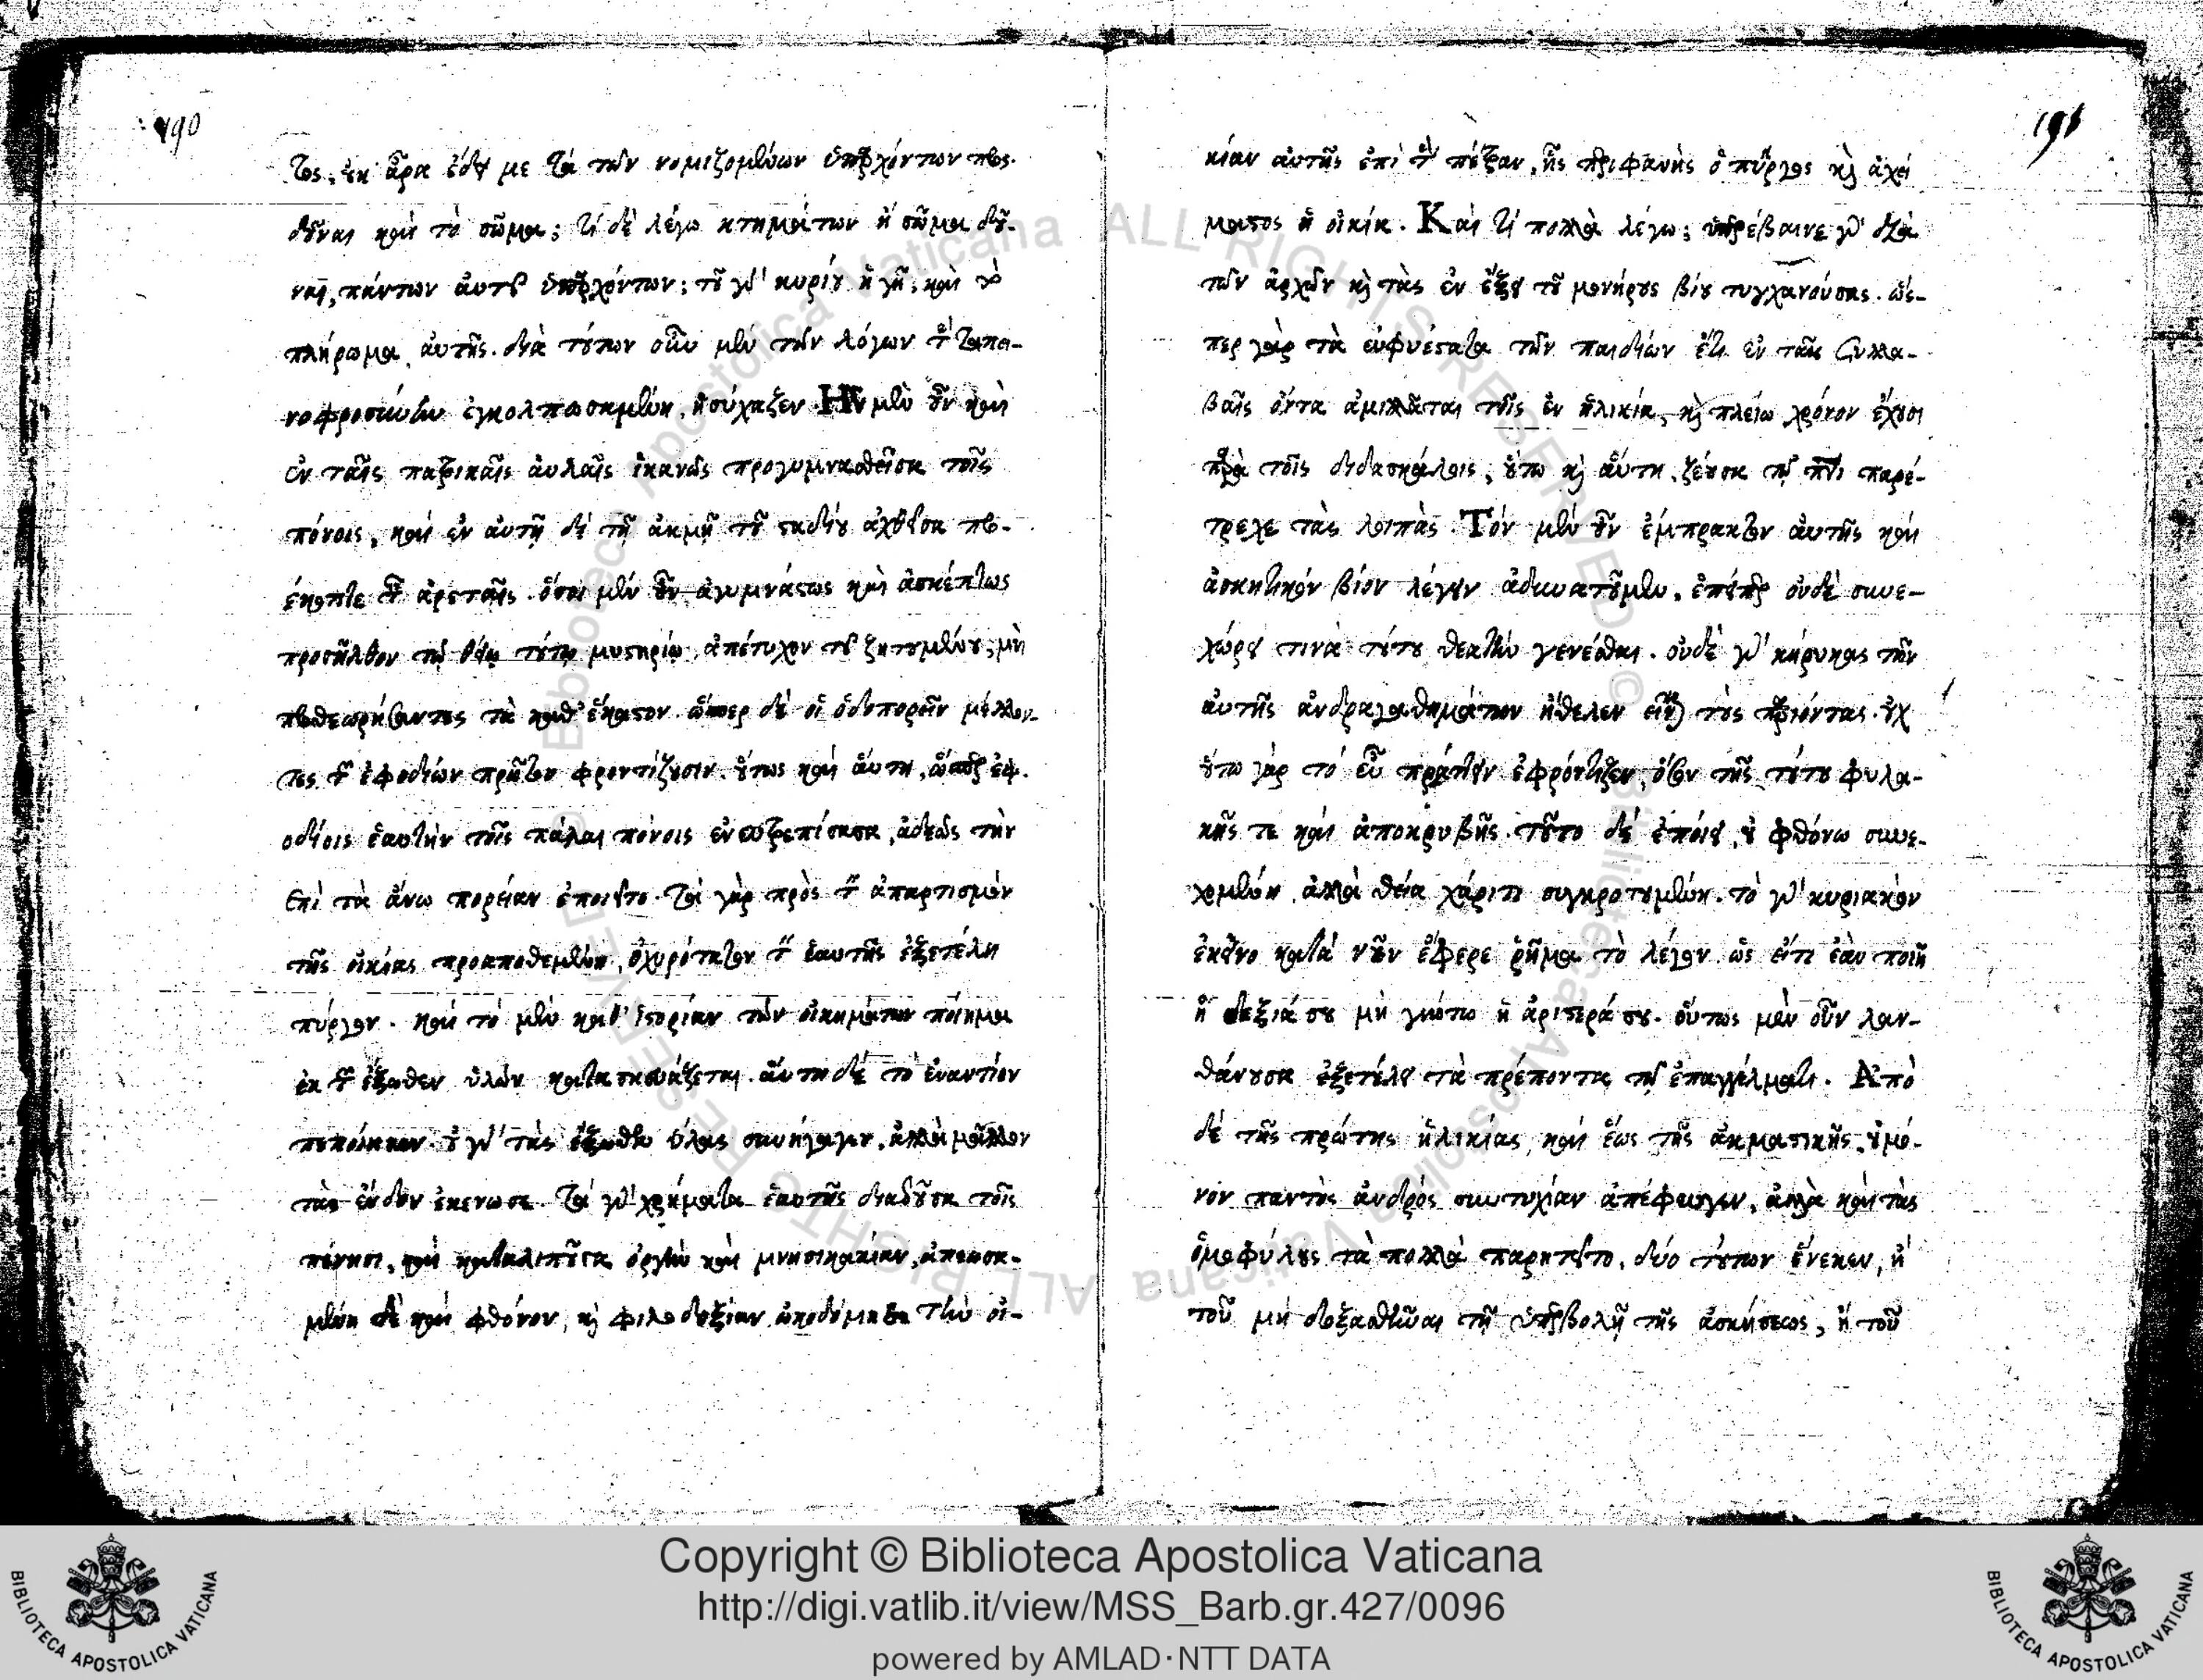 190
τος, οὐκ ἆρα ἔδει με τὰ τῶν νομιζομένων ὑπαρχόντων προς-
δοῦναι καὶ τὸ σῶμα; τί δὲ λέγω κτημάτων ἢ σῶμα δοῦ-
ναι, πάντων αὐτοῦ ὑπαρχόντων; τοῦ γὰρ κυρίου ἡ γῆ, καὶ τὸ
πλήρωμα αὐτῆς. διὰ τούτων οὖν μὲν τῶν λόγων τὴν ταπει-
νοφροσύνην ἐγκολπωσαμένη, ἡσύχαζεν. Ἦν μὲν οὖν καὶ
ἐν ταῖς πατρικαῖς αὐλαῖς ἱκανῶς προγυμνασθεῖσα τοῖς
πόνοις, καὶ ἐν αὐτῇ δὲ τῇ ἀκμῇ τοῦ σταδίου ἀχθεῖσα προ-
έκοπτε ταῖς ἀρεταῖς. ὅσοι μὲν οὖν ἀγυμνάστως καὶ ἀσκέπτως
προσῆλθον τῷ θείῳ τούτῳ μυστηρίῳ, ἀπέτυχον τοῦ ζητουμένου, μὴ
προθεωρήσαντες τὰ καθ' ἕκαστον. ὥσπερ δὲ οἱ ὁδοιπορεῖν μέλλον-
τες τῶν ἐφοδίων πρῶτον φροντίζουσιν. οὕτως καὶ αὕτη, ὥσπερ ἐφ-
οδίοις ἑαυτὴν τοῖς πάλαι πόνοις ἐνευτρεπίσασα, ἀδεῶς τὴν
ἐπὶ τὰ ἄνω πορείαν ἐποιεῖτο. τὰ γὰρ πρὸς τὸν ἀπαρτισμὸν
τῆς οἰκίας προαποθεμένη, ὀχυρώτατον τὸν ἑαυτῆς ἐξετέλει
πύργον. καὶ τὸ μὲν καθ' ἱστορίαν τῶν οἰκημάτων ποίημα
ἐκ τῶν ἔξωθεν ὑλῶν κατασκευάζεται. αὕτη δὲ τὸ ἐναντίον
πεποίηκεν. οὐ γὰρ τὰς ἔξωθεν ὕλας συνήγαγεν, ἀλλὰ μᾶλλον
τὰς ἔνδον ἐκένωσε. τὰ γὰρ χρήματα ἑαυτῆς διαδοῦσα τοῖς
πένησι, καὶ καταλιποῦσα ὀργὴν καὶ μνησικακίαν, ἀπωσα-
μένη δὲ καὶ φθόνον, καὶ φιλοδοξίαν, ᾠκοδόμησε τὴν οἰ-
191
κίαν αὐτῆς ἐπὶ τὴν πέτραν, ἧς περιφανὴς ὁ πύργος καὶ ἀχεί
μαστος ἡ οἰκία. Καὶ τί πολλὰ λέγω; ὑπερέβαινε γὰρ διὰ
τῶν ἀρχῶν καὶ τὰς ἐν ἕξει τοῦ μονήρους βίου τυγχανούσας. ὥς-
περ γὰρ τὰ εὐφυέστατα τῶν παιδίων ἔτι ἐν ταῖς συλλα-
βαῖς ὄντα ἁμιλλᾶται τοῖς ἐν ἡλικίᾳ, καὶ πλείω χρόνον ἔχουσι
παρὰ τοῖς διδασκάλοις, οὕτω καὶ αὕτη, ζέουσα τῷ πνεύματι παρέ-
τρεχε τὰς λοιπάς. Τὸν μὲν οὖν ἔμπρακτον αὐτῆς καὶ
ἀσκητικὸν βίον λέγειν ἀδυνατοῦμεν, ἐπείπερ οὐδὲ συνε-
χώρει τινὰ τούτου θεατὴν γενέσθαι. οὐδὲ γὰρ κήρυκας τῶν
αὐτῆς ἀνδραγαθημάτων ἤθελεν εἶναι τοὺς παριόντας. οὐχ
οὕτω γὰρ τὸ εὖ πράττειν ἐφρόντιζεν, ὅσον τῆς τούτου φυλα-
κῆς τε καὶ ἀποκρυβῆς. τοῦτο δὲ ἐποίει, οὐ φθόνῳ συνε-
χομένη, ἀλλὰ θείᾳ χάριτι συγκροτουμένη. τὸ γὰρ κυριακὸν
ἐκεῖνο κατὰ νοῦν ἔφερε ῥῆμα τὸ λέγον, ὡς εἴ τι ἐὰν ποιῇ
ἡ δεξιά σου μὴ γνώτω ἡ ἀριστερά σου. οὕτως μὲν οὖν λαν-
θάνουσα ἐξετέλει τὰ πρέποντα τῷ ἐπαγγέλματι. Ἀπὸ
δὲ τῆς πρώτης ἡλικίας, καὶ ἕως τῆς ἀκμαστικῆς, οὐ μό-
νον παντὸς ἀνδρὸς συντυχίαν ἀπέφευγεν, ἀλλὰ καὶ τὰς
ὁμοφύλους τὰ πολλὰ παρῃτεῖτο, δύο τούτων ἕνεκεν, ἢ
τοῦ μὴ δοξασθῆναι τῇ ὑπερβολῇ τῆς ἀσκήσεως, ἢ τοῦ
Copyright © Biblioteca Apostolica Vaticana
http://digi.vatlib.it/view/MSS_Barb.gr.427/0096
powered by AMLAD·NTT DATA
BIBLIOTECA APOSTOLICA VATICANA
BIBLIOTECA APOSTOLICA VATICANA